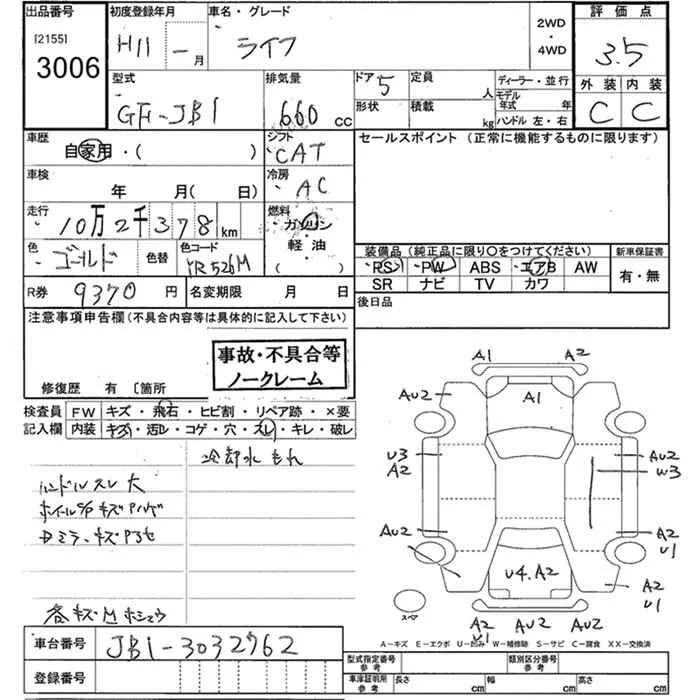 出品番号 初度登録年月 車名・グレード 2WD・4WD 評価点
[2155]
3006 H11 年 月 ライフ 3.5
外装 内装
C C
型式 排気量 ドア 5 定員 人 ディーラー・並行
GF-JB1 660 cc 形状 積載 kg モデル年式 年
ハンドル 左・右
車歴 自家用・( ) シフト CAT セールスポイント (正常に機能するものに限ります)
車検 年 月( 日) 冷房 AC
走行 10万2千378km 燃料 ガソリン
軽油
( )
色 ゴールド 色替 色コード YR526M
装備品 (純正品に限り○をつけてください) 新車保証書
PS PW ABS エアB AW 有・無
SR ナビ TV カワ
R券 9370 円 名変期限 月 日 後日品
注意事項申告欄(不具合内容等は具体的に記入して下さい)
事故・不具合等
ノークレーム
修復歴 有 〔箇所
検査員 FW キズ・飛石・ヒビ割・リペア跡・×要
記入欄 内装 キズ・汚レ・コゲ・穴・スレ・キレ・破レ
冷却水 もれ
ハンドル スレ 大
A1 A2
AU2 A1
U3 A2 AU2 W3
AU2 A2 U1
U4.A2 A2 U1
スペア
A2 U1 AU2 AU2
A-キズ E-エクボ U-凹み W-補修跡 S-サビ C-腐食 XX-交換済
車台番号 JB1-3032762
登録番号
型式指定番号 参考 類別区分番号 参考
車庫証明用 参考 長さ cm 幅 cm 高さ cm